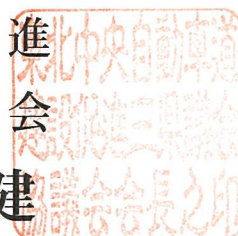 進会
建
東北中央自動車道
建設促進三県
協議会会長之印